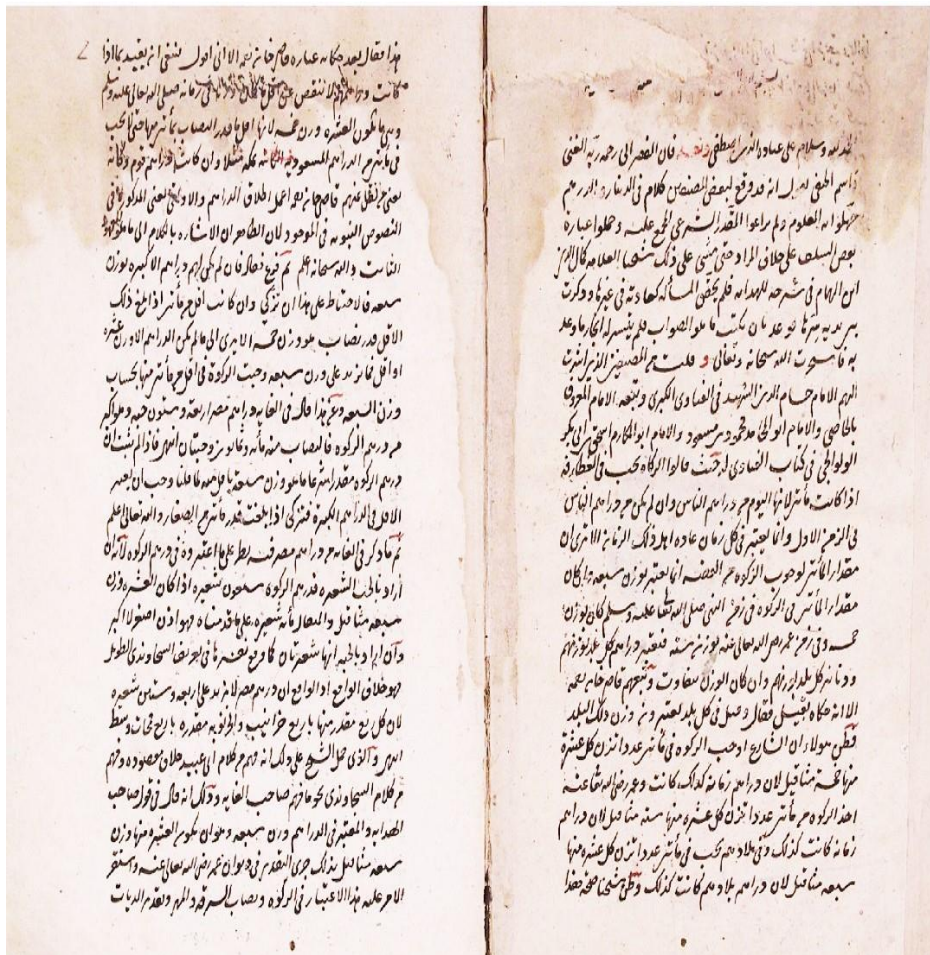 الحمد لله وسلام على عباده الذين اصطفى وبعد فان الفقير الى رحمة ربه الغني
قاسم الحنفي يقول انه قد وقع لبعض المصنفين كلام في الدينار والدرهم
جهلوا به المعلوم ولم يراعوا المقدر الشرعي المجمع عليه وحملوا عبارة
بعض السلف على خلاف المراد حتى مشى على ذلك شيخنا العلامة كمال الدين
ابن الهمام في شرحه للهداية فلم يحقق المسألة كعادته في غيرها وذكرت
بين يديه فوعد بان يكتب ما هو الصواب فلم يتيسر له انجاز ما وعد
به فاستخرت الله سبحانه وتعالى وقلت من المصنفين الذين اشرت
اليهم الامام حسام الدين الشهيد في الفتاوى الكبرى وتبعه الامام المعروف
بالخاصي والامام ابو المحامد محمود بن مسعود والامام ابو المكارم اسحق بن ابي بكر
الولوالجي في كتاب الفتاوى له حيث قالوا الزكاة تجب في الغطارفة
اذا كانت مأتين لانها اليوم من دراهم الناس وان لم تكن من دراهم الناس
في الزمن الاول وانما يعتبر في كل زمان عادة اهل ذلك الزمان الا ترى ان
مقدار المأتين لوجوب الزكوة من الفضة انما يعتبر بوزن سبعة وان كان
مقدار المأتين في الزكوة في زمن النبي صلى الله تعالى عليه وسلم كان بوزن
خمسة وفي زمن عمر رضي الله تعالى عنه بوزن ستة فتعتبر دراهم كل بلد بوزنهم
ودنانير كل بلد بوزنهم وان كان الوزن يتفاوت وتبعهم قاضي خان رحمه
الا انه حكاه بقيل فقال وقيل في كل بلد يعتبر وزن ذلك البلد
فظن هولاء ان الشارع اوجب الزكوة في مأتين عددا تزن كل عشرة
منها خمسة مثاقيل لان دراهم زمانه كذلك كانت وعمر رضي الله تعالى عنه
اخذ الزكوة من مأتين عددا تزن كل عشرة منها ستة مثاقيل لان دراهم
زمانه كانت كذلك وفي بلادهم تجب في مأتين عددا تزن كل عشرة منها
سبعة مثاقيل لان دراهم بلادهم كانت كذلك وظن شيخنا صحة هذا
هذا فقال بعد حكاية عبارة قاضي خان رحمه الا اني اقول ينبغي ان يقيد بما اذا
كانت دراهمهم لا تنقص عن اقل ما كان في زمانه صلى الله تعالى عليه وسلم
وهي ما تكون العشرة وزن خمسة لانها اقل ما قدر النصاب بمأتين منها حتى لا تجب
في مأتين من الدراهم المسعودية الكائنة بمكة مثلا وان كانت دراهم قوم وكانه
النصوص النبوية في الموجود لان الظاهر ان الاشارة بالكلام الى ما هو المعهود
الثابت والله سبحانه اعلم ثم فرع فقال فان لم يكن لهم دراهم الا كبيرة بوزن
سبعة فالاحتياط على هذا ان تزكى وان كانت اقل من مأتين اذا بلغ ذلك
الاقل قدر نصاب هو وزن خمسة الا يرى الى ما لم تكن الدراهم الا وزن عشرة
او اقل مما يزيد على وزن سبعة وجبت الزكوة في اقل من مأتين منها بحساب
وزن السبعة وعن هذا قال في الغاية دراهم مصر اربعة وستون حبة وهو اكبر
من درهم الزكوة فالنصاب منه مأئة وثمانون وحبتان انتهى فاذا لم يثبت ان
درهم الزكوة مقدر شرعا بما هو وزن سبعة بل باقل منه لما قلنا وجب ان يعتبر
الاقل في الدراهم الكبيرة فتزكى اذا بلغت قدر مأتين من الصغار والله تعالى اعلم
ثم ما ذكر في الغاية من دراهم مصر فيه نظر على ما اعتبروه في درهم الزكوة لانه ان
اراد بالحبة الشعيرة فدرهم الزكوة سبعون شعيرة اذا كان العشرة وزن
سبعة مثاقيل والمثقال مأئة شعيرة على ما قدمناه فهو اذن اصغر لا اكبر
وان اراد بالحبة انها شعيرتان كما وقع تفسيرها في تعريف السجاوندي الطويل
فهو خلاف الواقع اذ الواقع ان درهم مصر لا يزيد على اربعة وستين شعيرة
لان كل ربع مقدر منها باربع خرانيب والخرنوبة مقدرة باربع قمحات وسط
انتهى والذي حمل الشيخ على ذلك انه فهم من كلام ابي عبيد خلاف مقصوده وفهم
من كلام السجاوندي نحو ما فهم صاحب الغاية وذلك انه قال في قول صاحب
الهداية والمعتبر في الدراهم وزن سبعة وهو ان تكون العشرة منها وزن
سبعة مثاقيل بذلك جرى التقدير في ديوان عمر رضي الله تعالى عنه واستقر
الامر عليه هذا الاعتبار في الزكوة ونصاب السرقة والمهر وتقدير الديات